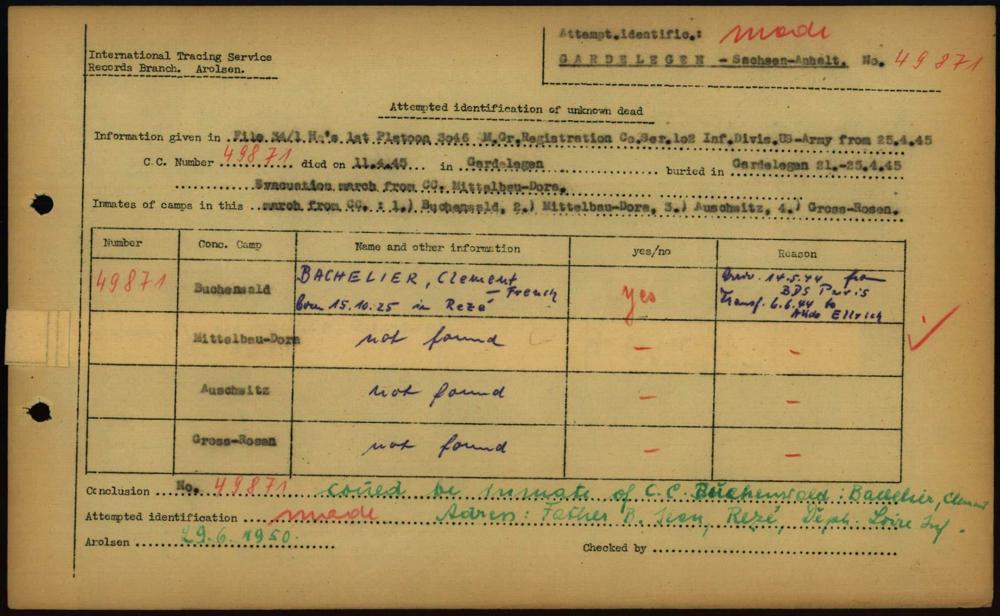 Attempt.identific.: made
International Tracing Service
Records Branch. Arolsen.
GARDELEGEN - Sachsen-Anhalt. No. 49871
Attempted identification of unknown dead
Information given in File 3A/1 Hq's 1st Platoon 3046 M.Gr.Registration Co.Ser.102 Inf.Divis.US-Army from 25.4.45
C.C. Number 49871 died on 11.4.45 in Gardelegen buried in Gardelegen 21.-25.4.45
Evacuation march from CC. Mittelbau-Dora.
Inmates of camps in this march from CC. : 1.) Buchenwald, 2.) Mittelbau-Dora, 3.) Auschwitz, 4.) Gross-Rosen.
Number Conc. Camp Name and other information yes/no Reason
49871 Buchenwald BACHELIER, Clement - French born 15.10.25 in Rezé yes 14.5.44 from BDS Paris Transf. 6.6.44 to Ellrich
Mittelbau-Dora not found - -
Auschwitz not found - -
Gross-Rosen not found - -
Conclusion No. 49871 could be inmate of C.C. Buchenwald: Bachelier, Clement
Attempted identification made Adress: Father B. Jean, Rezé, Deph. Loire Inf.
Arolsen 29.6.1950.
Checked by